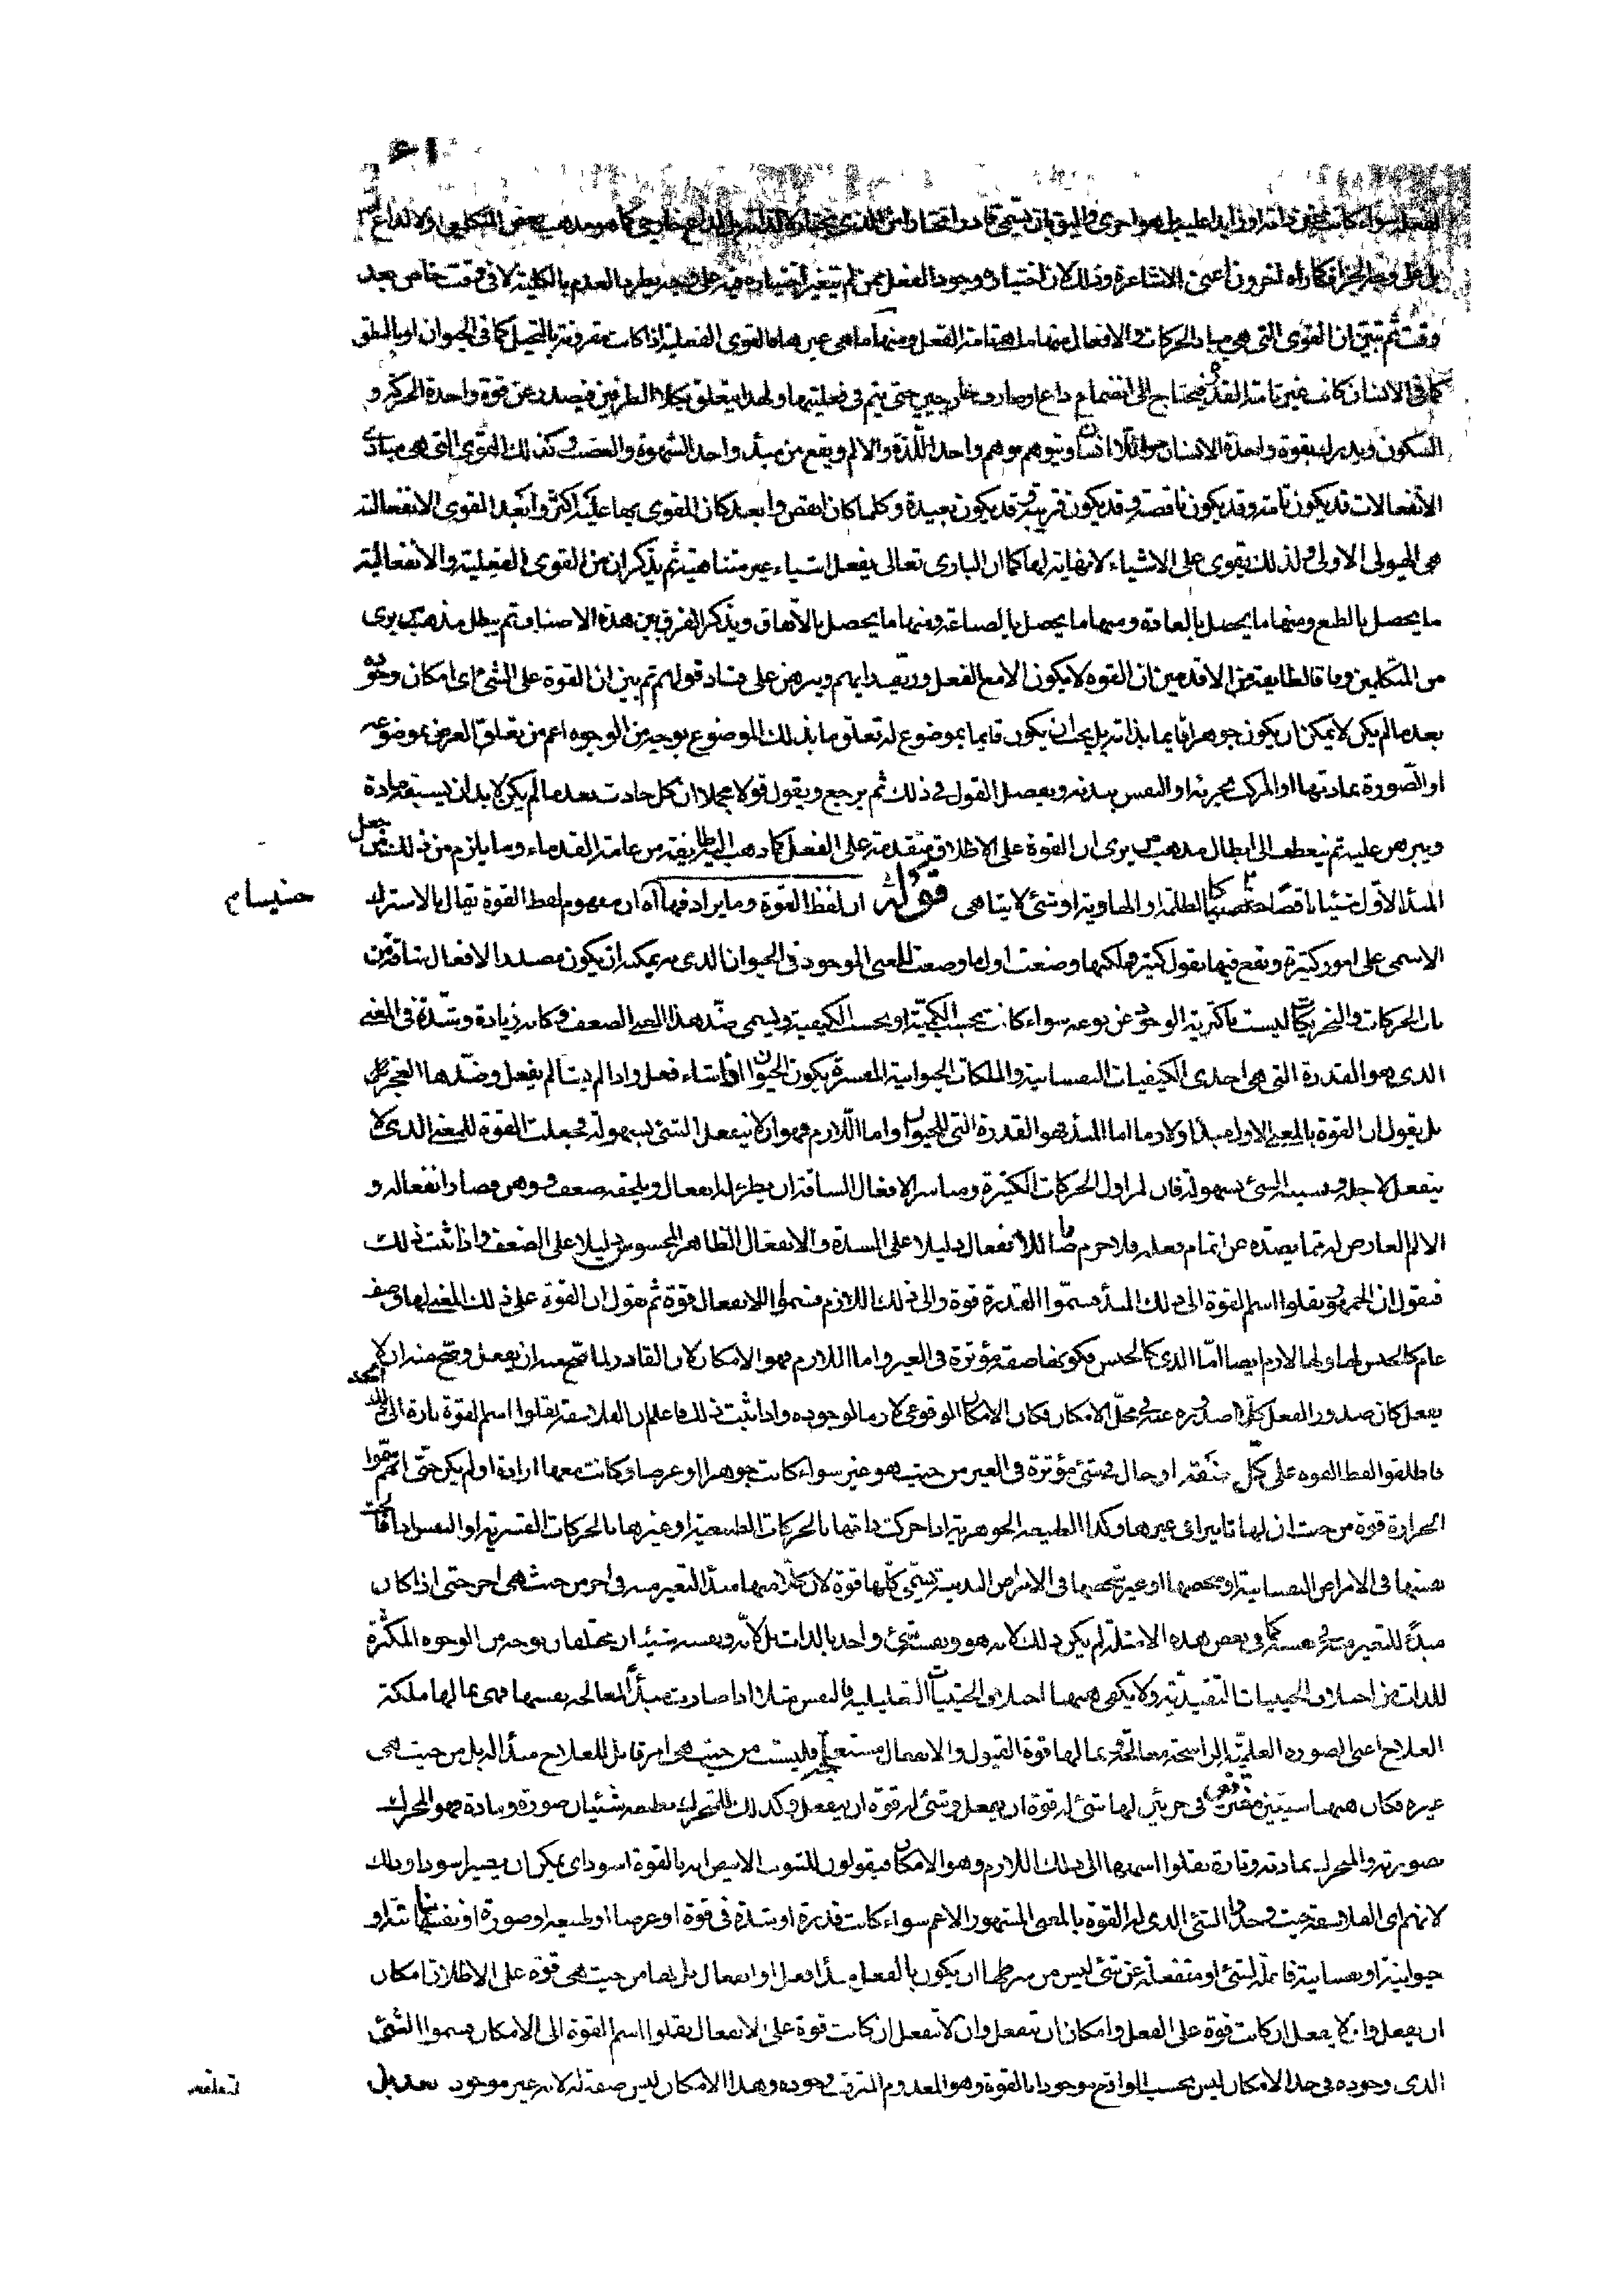 الفعل سواء كانت عين ذاته او زايدا عليه بل هو احرى واليق بان يسمى قادرا مختارا من الذى يختار لا لذاته بل لداع خارجى كما هو مذهب بعض المتكلمين او لا لداع
بل على وجه الجزاف كما راه اخرون اعنى الاشاعرة وذلك لان اختياره وجود الفعل ممن لم يتغير اختياره فيه على وجه يطرد العدم بالكلية لا فى وقت خاص بعد
وقت ثم تبين ان القوى التى هى مبادى الحركات والافعال منها ما هى تامة الفعل ومنها ما هى غيرها فالقوى الفعلية اذا كانت مقرونة بالتخيل كما فى الحيوان او بالنطق
كما فى الانسان كانت غير تامة القدرة فيحتاج الى انضمام داع او صارف خارجيين حتى يتم فى فعليتها ولهذا يتعلق بكلا الطرفين فيصدر عن قوة واحدة الحركة و
السكون ويدرك بقوة واحدة الانسان واللاانسان ويتوهم بوهم واحد اللذة والالم ويقع من مبدأ واحد الشهوة والغضب وكذلك القوى التى هى مبادى
الانفعالات قد يكون تامة وقد يكون ناقصة وقد يكون قريبة وقد يكون بعيدة وكلما كان انقص وابعد كان المقوى بها عليه اكثر وابعد القوى الانفعالية
هى الهيولى الاولى ولذلك يقوى على الاشياء لا نهاية لها كما ان البارى تعالى يفعل اشياء غير متناهية ثم يذكر ان من القوى الفعلية والانفعالية
ما يحصل بالطبع ومنها ما يحصل بالعادة ومنها ما يحصل بالصناعة ومنها ما يحصل بالاتفاق ويذكر الفرق بين هذه الاصناف ثم يبطل مذهب من يرى
من المتكلمين وما قال طايفة من الاقدمين ان القوة لا يكون الا مع الفعل ورد رايهم ويبرهن على فساد قولهم ثم يبين ان القوة على الشئ اى امكان وجوده
بعد ما لم يكن لا يمكن ان يكون جوهرا قايما بذاته بل يجب ان يكون قايما بموضوع له تعلق ما بذلك الموضوع بوجه من الوجوه اعم من تعلق العرض بموضوعه
او الصورة بمادتها او المركب بجزئه او النفس ببدنه ويفصل القول فى ذلك ثم يرجع ويقول قولا مجملا ان كل حادث بعد ما لم يكن لا بد ان يسبقه مادة
ويبرهن عليه ثم ينعطف الى ابطال مذهب من يرى ان القوة على الاطلاق متقدمة على الفعل كما ذهب اليه طايفة من عامة القدماء وما يلزم من ذلك من جعل
المبدأ الاول شيئا ناقصا كالظلمة او الهاوية او شئ لا يتناهى قوله ان لفظ القوة وما يراد فها اه ان مفهوم لفظ القوة تقال بالاشتراك
الاسمى على امور كثيرة ويقع فيها نقول كثيرة لكنها وضعت اول ما وضعت للمعنى الموجود فى الحيوان الذى به يمكنه ان يكون مصدرا لافعال شاقة من
باب الحركات والتحريكات ليست باكثرية الوجود عن نوعه سواء كانت بحسب الكمية او بحسب الكيفية ويسمى ضد هذا المعنى الضعف وكانه زيادة وشدة فى المعنى
الذى هو القدرة التى هى احدى الكيفيات النفسانية والملكات الحيوانية المفسرة بكون الحيوان اذا شاء فعل واذا لم يشأ لم يفعل وضدها العجز
بل يقول ان القوة بالمعنى الاول مبدأ ولازما اما المبدأ فهو القدرة التى للحيوان واما اللازم فهو ان لا ينفعل الشئ بسهولة فجعلت القوة للمعنى الذى لا
ينفعل لاجله وبسببه الشئ بسهولة فان لمزاول الحركات الكثيرة ومباشر الافعال الشاقة ان يطرأ له انفعال ويلحقه ضعف ووهن وصار انفعاله و
الالم العارض له مما يصده عن اتمام فعله فلا جرم صار اللاانفعال دليلا على الشدة والانفعال الظاهر المحسوس دليلا على الضعف واذا ثبت ذلك
فنقول ان الجمهور نقلوا اسم القوة الى ذلك المبدأ فسموا القدرة قوة والى ذلك اللازم فسموا اللاانفعال قوة ثم نقول ان القوة على ذلك المعنى لها وصف
عام كالجنس لها ولها لازم ايضا اما الذى كالجنس فكونها صفة مؤثرة فى الغير واما اللازم فهو الامكان لان القادر لما صح منه ان يفعل وصح منه ان لا
يفعل كان صدور الفعل كلا صدوره عنه فى محل الامكان فكان الامكان الوقوعى لازما لوجوده واذا ثبت ذلك فاعلم ان الفلاسفة نقلوا اسم القوة تارة الى ذلك
فاطلقوا لفظ القوة على كل صفة او حال فى شئ مؤثرة فى الغير من حيث هو غير سواء كانت جوهرا او عرضا وكانت معها ارادة او لم يكن حتى انهم سموا
الحرارة قوة من حيث ان لها تاثيرا فى غيرها وكذا الطبيعة الجوهرية اذا حركت ذاتها بالحركات الطبيعية او غيرها بالحركات القسرية او النفس اذا عالجت
نفسها فى الامراض النفسانية او شخصها او غير شخصها فى الامراض البدنية تسمى كلها قوة لان كلا منها مبدأ التغير منه فى اخر من حيث هى اخر حتى اذا كان
مبدأ للتغير منه فى نفسه كما فى بعض هذه الامثلة لم يكن ذلك لانه هو ونفسه شئ واحد بالذات بل لانه ونفسه شيئان يختلفان بوجه من الوجوه المكثرة
للذات من اختلاف الحيثيات التقييدية ولا يكفى هيهنا اختلاف الحيثيات التعليلية فالنفس مثلا اذا صارت مبدأ لمعالجة نفسها فهى بما لها ملكة
العلاج اعنى الصورة العلمية الراسخة معالجة وبما لها قوة القبول والانفعال مستعلجة وليست من حيث هى امر قابل للعلاج مبدأ له بل من حيث هى
غيره فكان هيهنا شيئين مفترقين فى جزئين لها شئ له قوة ان يفعل وشئ له قوة ان ينفعل وكذلك المتحرك بطبعه شيئان صورة ومادة فهو المحرك
بصورته والمتحرك بمادته وتارة نقلوا اسمها الى ذلك اللازم وهو الامكان فيقولون للثوب الابيض انه بالقوة اسود اى يمكن ان يصير اسود وذلك
لانهم اى الفلاسفة حيث وجدوا الشئ الذى له القوة بالمعنى المشهور الاعم سواء كانت قدرة او شدة فى قوة او عرضا او طبيعة او صورة او نفسا نباتية او
حيوانية او نفسانية فاعلة لشئ او منفعلة عن شئ ليس من شرطها ان يكون بالفعل مبدأ فعل او انفعال بل لها من حيث هى قوة على الاطلاق امكان
ان يفعل وان لا يفعل ان كانت قوة على الفعل وامكان ان ينفعل وان لا ينفعل ان كانت قوة على الانفعال نقلوا اسم القوة الى الامكان فسموا الشئ
الذى وجوده فى حد الامكان ليس بحسب الواقع موجودا بالقوة وهو المعدوم المترتب وجوده وهذا الامكان ليس صفة له لانه غير موجود بعد بل